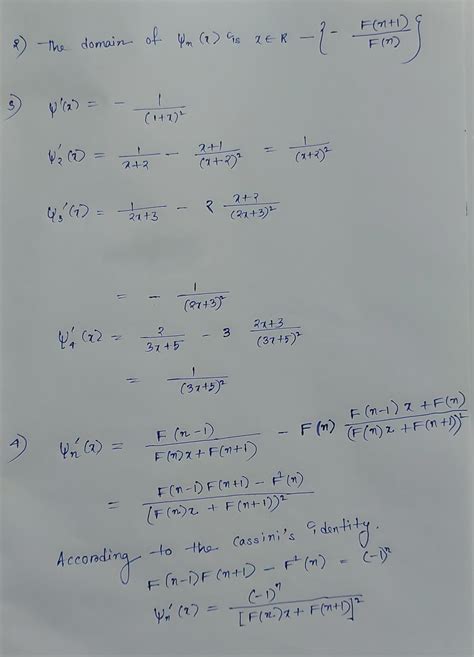 2) - The domain of ψₙ(x) is x ∈ R - { - F(n+1)/F(n) }
3) ψ'(x) = - 1/(1+x)²
ψ₂'(x) = 1/(x+2) - (x+1)/(x+2)² = 1/(x+2)²
ψ₃'(x) = 1/(2x+3) - 2 (x+2)/(2x+3)²
= - 1/(2x+3)²
ψ₄'(x) = 2/(3x+5) - 3 (2x+3)/(3x+5)²
= 1/(3x+5)²
4) ψₙ'(x) = F(n-1)/(F(n)x + F(n+1)) - F(n) (F(n-1)x + F(n))/(F(n)x + F(n+1))²
= (F(n-1)F(n+1) - F²(n))/(F(n)x + F(n+1))²
According to the Cassini's identity.
F(n-1)F(n+1) - F²(n) = (-1)ⁿ
ψₙ'(x) = (-1)ⁿ/[F(n)x + F(n+1)]²